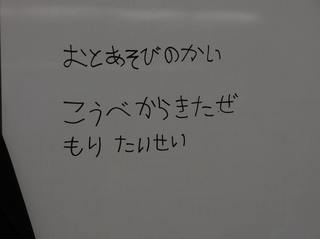 おとあそびのかい
こうべからきたぜ
もり たいせい